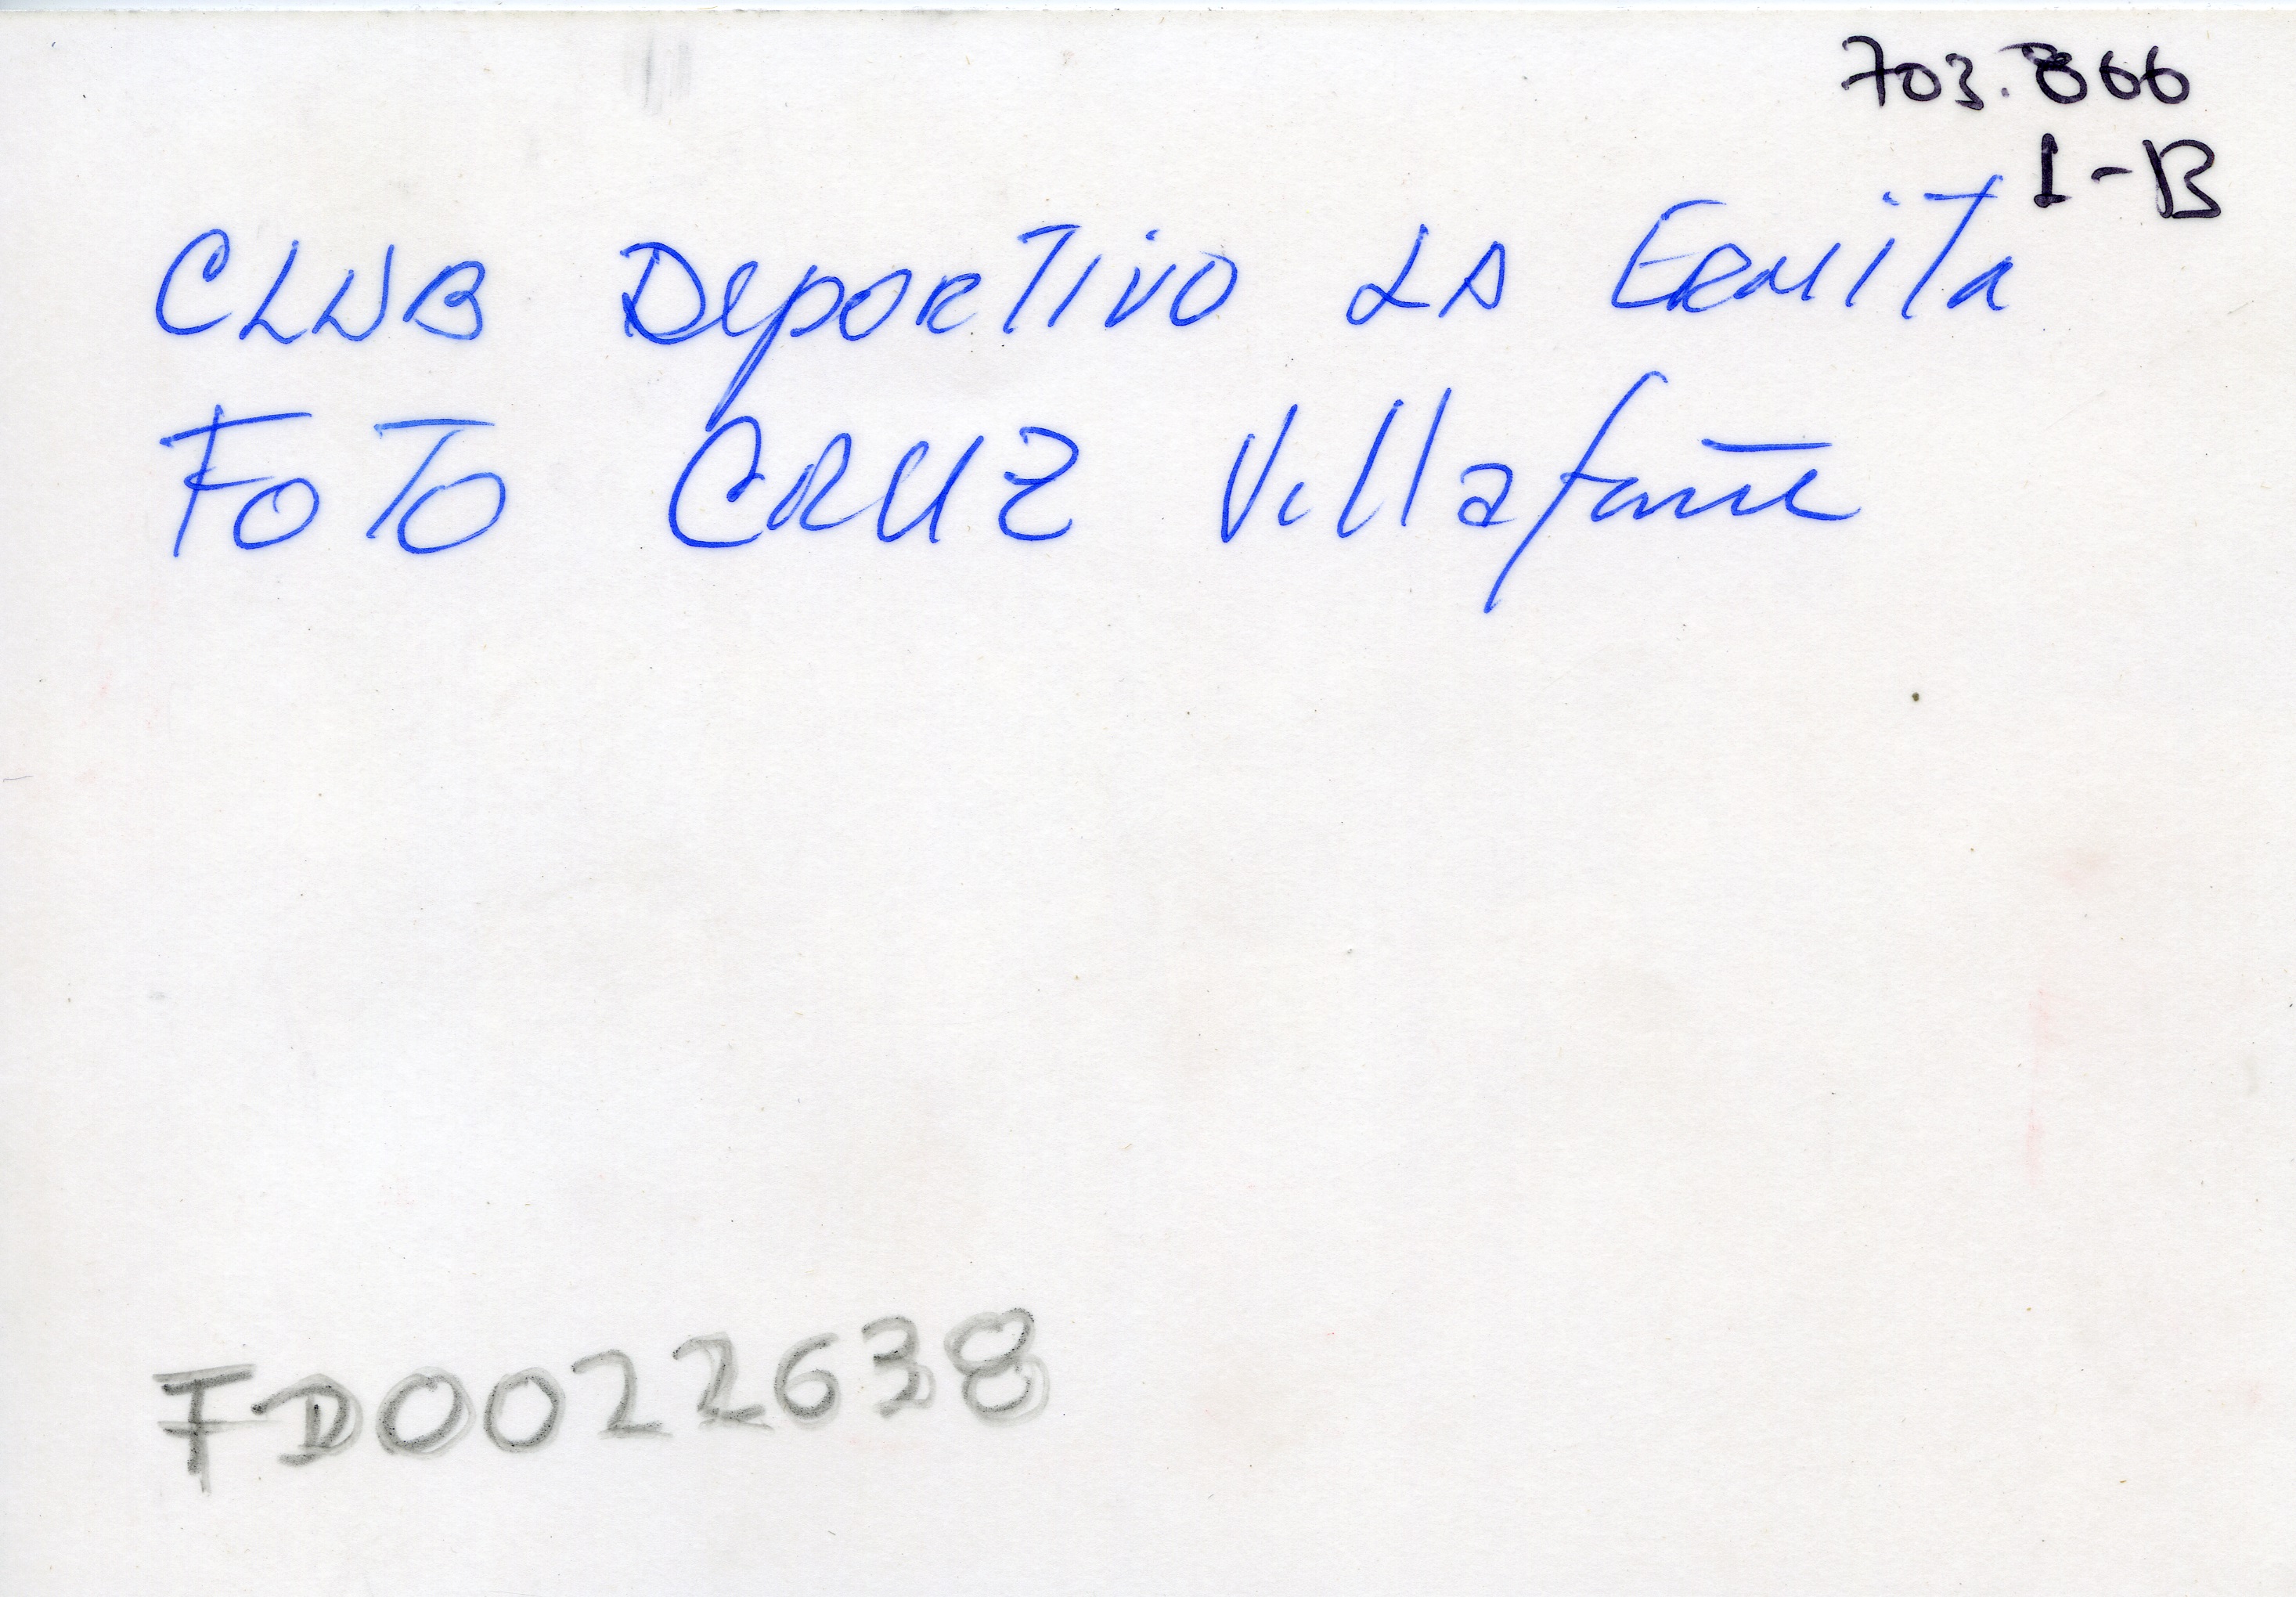 703.866
1-B
CLUB DeporTivo LA ErmiTa
FoTo CRUZ Villafañe
FD0022638